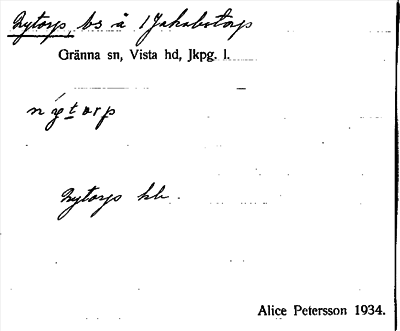 Nytorp, bs å 1 Jakobstorp
Gränna sn, Vista hd, Jkpg. l.
Nytorps hb.
Alice Petersson 1934.